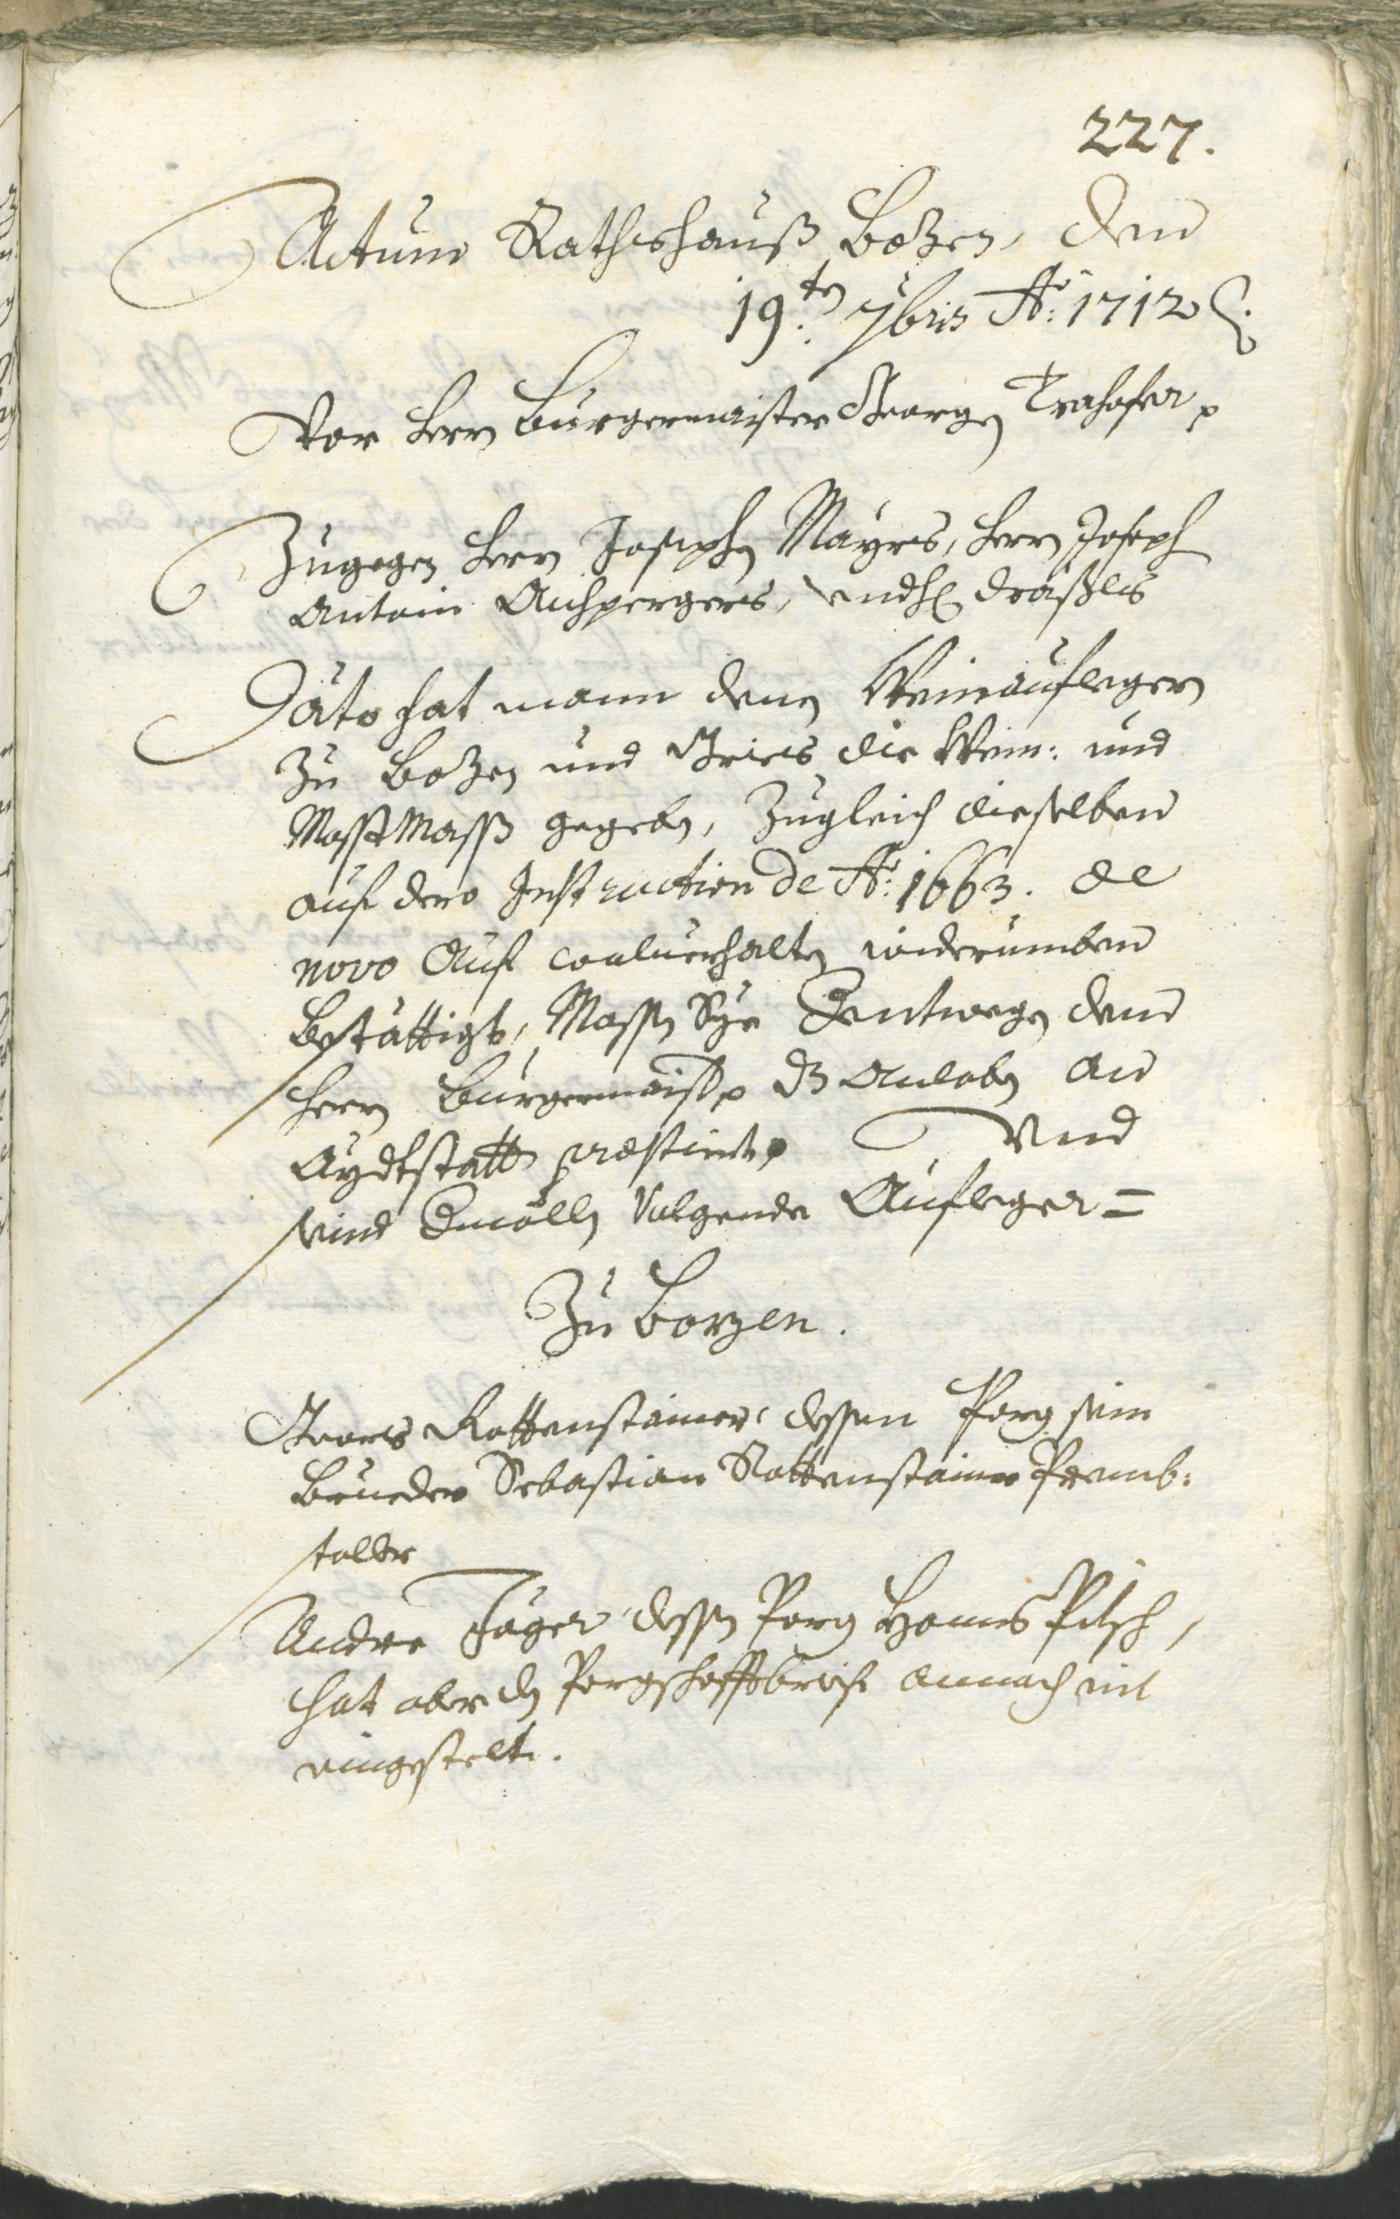 227.
Actum Rathshauß Bozen, den
19.ten 7bris Ao: 1712
Vor Herrn Burgermaister Georgen Trahofer
Zugegen Herrn Josephen Mayrs, Herrn Joseph
Antoni Aichpergers, vnd H:
Dato hat mann denen Weinauflegern
zu Bozen und Gries die Wein: und
Mosst Mass gegeben, zugleich dieselben
auf dero Instruction de Ao: 1663. de
novo auf wolverhalten widerumben
bestättigt, Massen Sye dentwegen dem
Herrn Burgermaister dz anloben an
Aydtstatt praestiert Und
seind dermallen volgende Aufleger =
Zu Bozen.
Georg Rottenstainer, dessen Porg sein
Brueder Sebastian Rottenstainer Premb:
staller
Andre Jäger, dessen Porg Hanns Pitsch,
hat aber den Porgschafftbrief annoch nit
eingestelt.